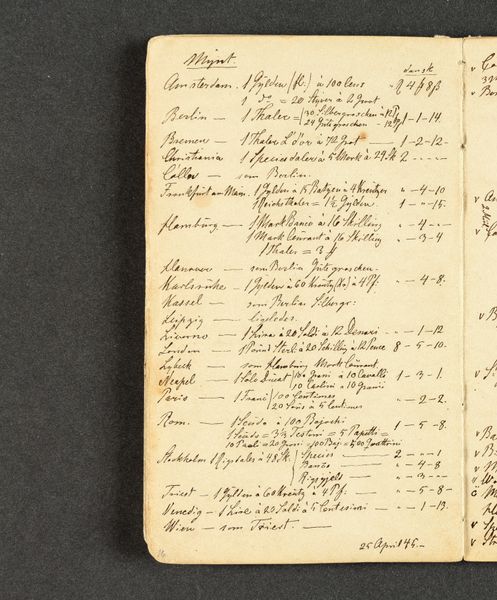 Mynt.
dansk
Amsterdam. 1 Gylden (fl.) à 100 Cens " 4 # 8 ß
1 do = 20 Styver à 2 Groot
Berlin — 1 Thaler = 30 Silbergroschen à 12 Pf.
24 Gutegroschen - 12 Pf 1-1-14.
Bremen — 1 Thaler L d'or à 72 Grot — 1-2-12-
Christiania 1 Speciesdaler à 5 Mark à 24 Sk 2 - - -
Cölln — som Berlin.
Frankfurt am Main. 1 Gylden à 15 Batzen à 4 Kreutzer " -4-10
1 Reichsthaler = 1½ Gylden. 1-"-15.
Hamburg — 1 Mark Banco à 16 Skilling " -4-"
1 Mark Courant à 16 Skilling "-3-4
1 Thaler = 3 #
Hanover — som Berlin Gutegroschen.
Karlsruhe — 1 Gylden à 60 Kreutz à 4 Pf: "-4-8.
Kassel — som Berlin Silbergr:
Leipzig — ligeledes.
Livorno — 1 Lira à 20 Soldi à 12 Denari - "-1-12
London — 1 Pund Sterl: à 20 Schilling à 12 Pence 8-5-10.
Lybek — som Hamburg Mark Courant.
Neapel — 1 Sole Ducat 100 Grani à 10 Cavalli 1-3-1.
10 Carlini à 10 Grani
Paris — 1 Franc 100 Centimes "-2-2.
20 Sous à 5 Centimes
Rom. — 1 Scudo à 100 Bajochi 1-5-8.
1 Scudo = 3⅓ Testoni = 5 Papetti =
10 Paoli = 20 Groni = 100 Baj = 500 Quattrini
Stockholm 1 Rigsdaler à 48 Sk. Species — 2-"-1
Banco — "-4-8
Rigsgjeld — "-3-"
Triest — 1 Gylden à 60 Kreutz à 4 Pf. — "-5-8-
Venedig — 1 Lire à 20 Soldi à 5 Centesimi — "-1-13.
Wien — som Triest. —
25 April 45.-